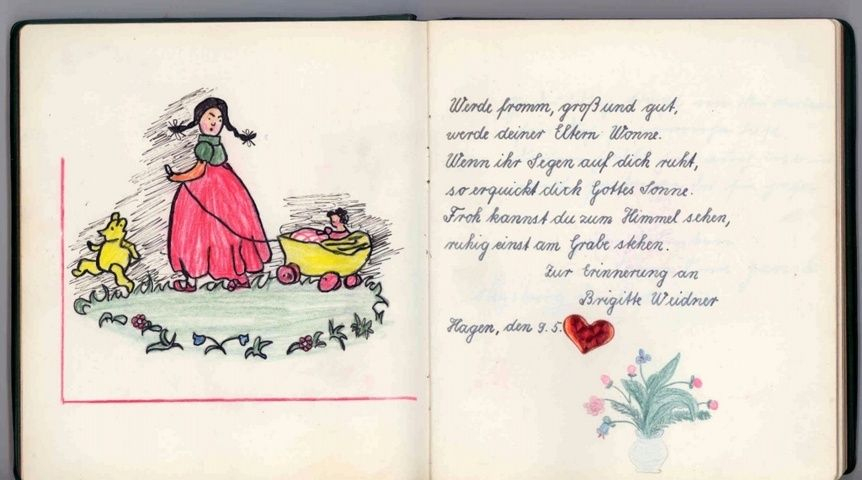 Werde fromm, groß und gut,
werde deiner Eltern Wonne.
Wenn ihr Segen auf dich ruht,
so erquickt dich Gottes Sonne.
Froh kannst du zum Himmel sehen,
ruhig einst am Grabe stehen.
Zur Erinnerung an
Brigitte Weidner
Hagen, den 9.5.